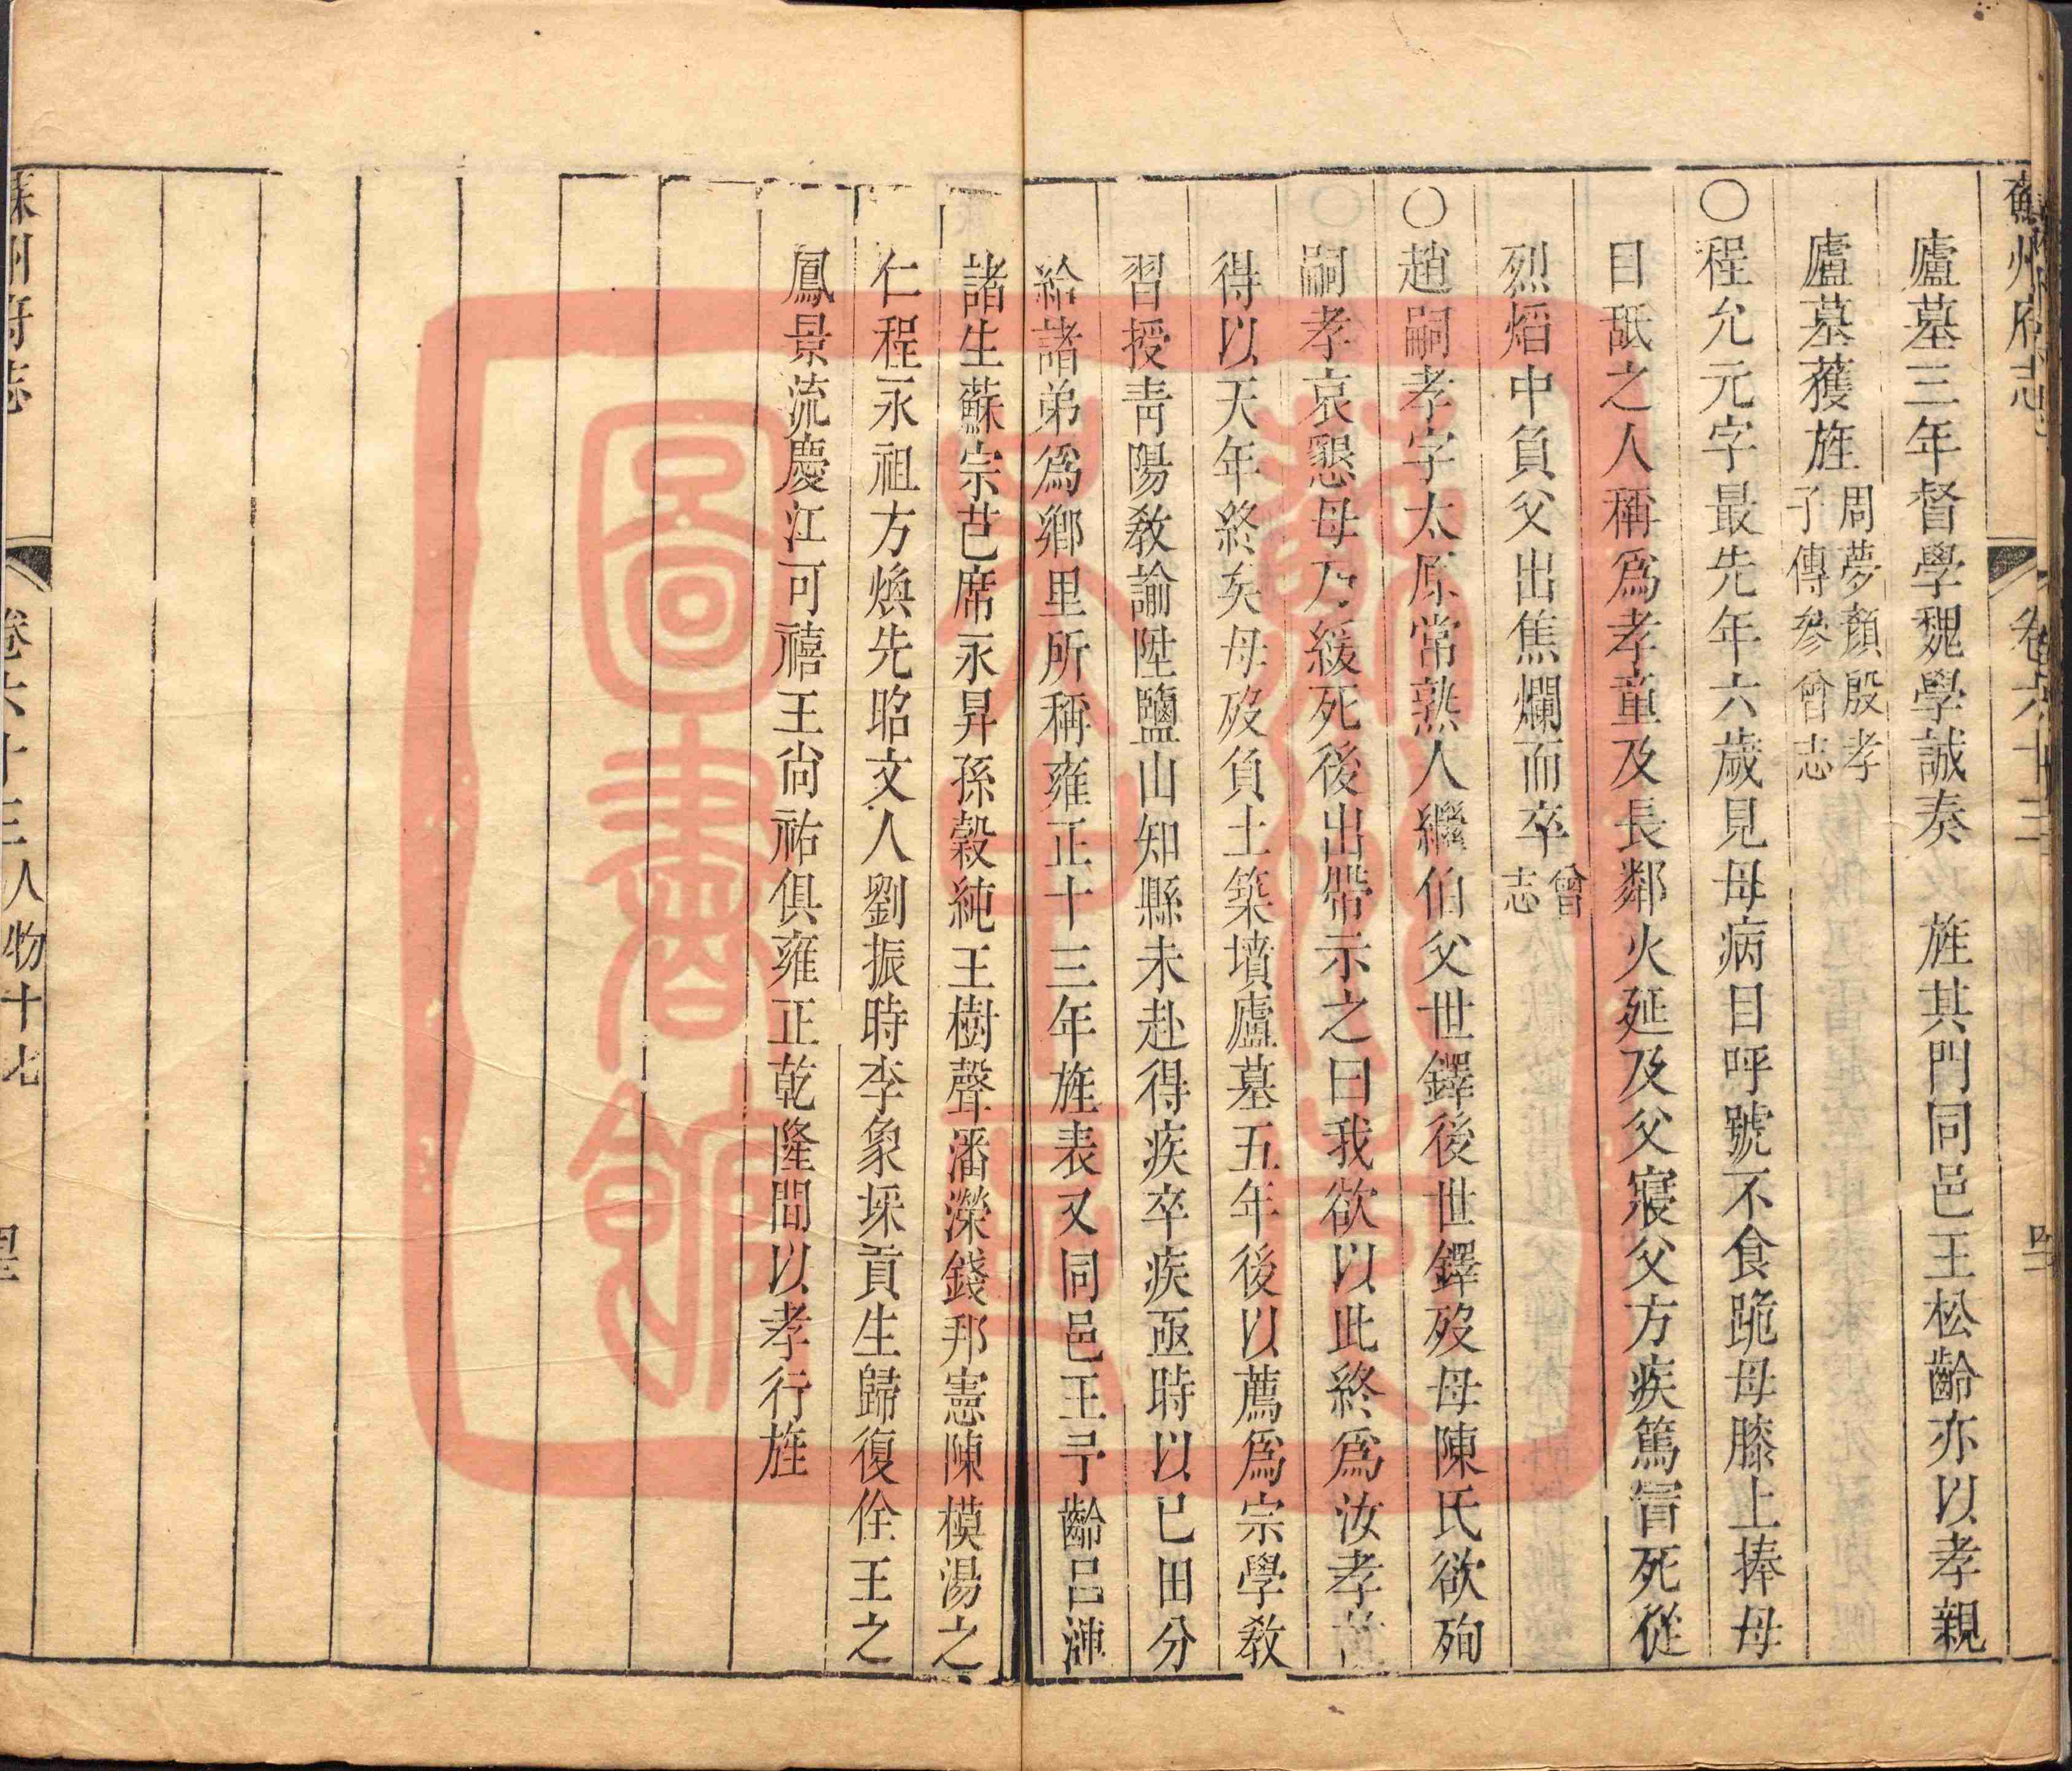 蘇州府志
卷六十三
廬墓三年督學魏學誠奏 旌其門同邑王松齡亦以孝親
廬墓獲旌周夢顏殷孝
子傳參曾志
○程允元字最先年六歲見母病目呼號不食跪母膝上捧母
目舐之人稱爲孝童及長鄰火延及父寢父方疾篤冒死從
烈熖中負父出焦爛而卒曾
志
○趙嗣孝字太原常熟人繼伯父世鐸後世鐸歿母陳氏欲殉
嗣孝哀懇母乃緩死後出帶示之曰我欲以此終爲汝孝
得以天年終矣母歿負土築墳廬墓五年後以薦爲宗學敎
習授靑陽敎諭陞鹽山知縣未赴得疾卒疾亟時以已田分
給諸弟爲鄉里所稱雍正十三年旌表又同邑王予齡呂溥
諸生蘇宗芑席永昇孫穀純王樹聲潘濚錢邦憲陳模湯之
仁程永祖方煥先昭文人劉振時李象埰貢生歸復佺王之
鳳景流慶江可禧王尙祐俱雍正乾隆間以孝行旌
蘇州府志
卷六十三
人物十七
蘇州市立圖書館